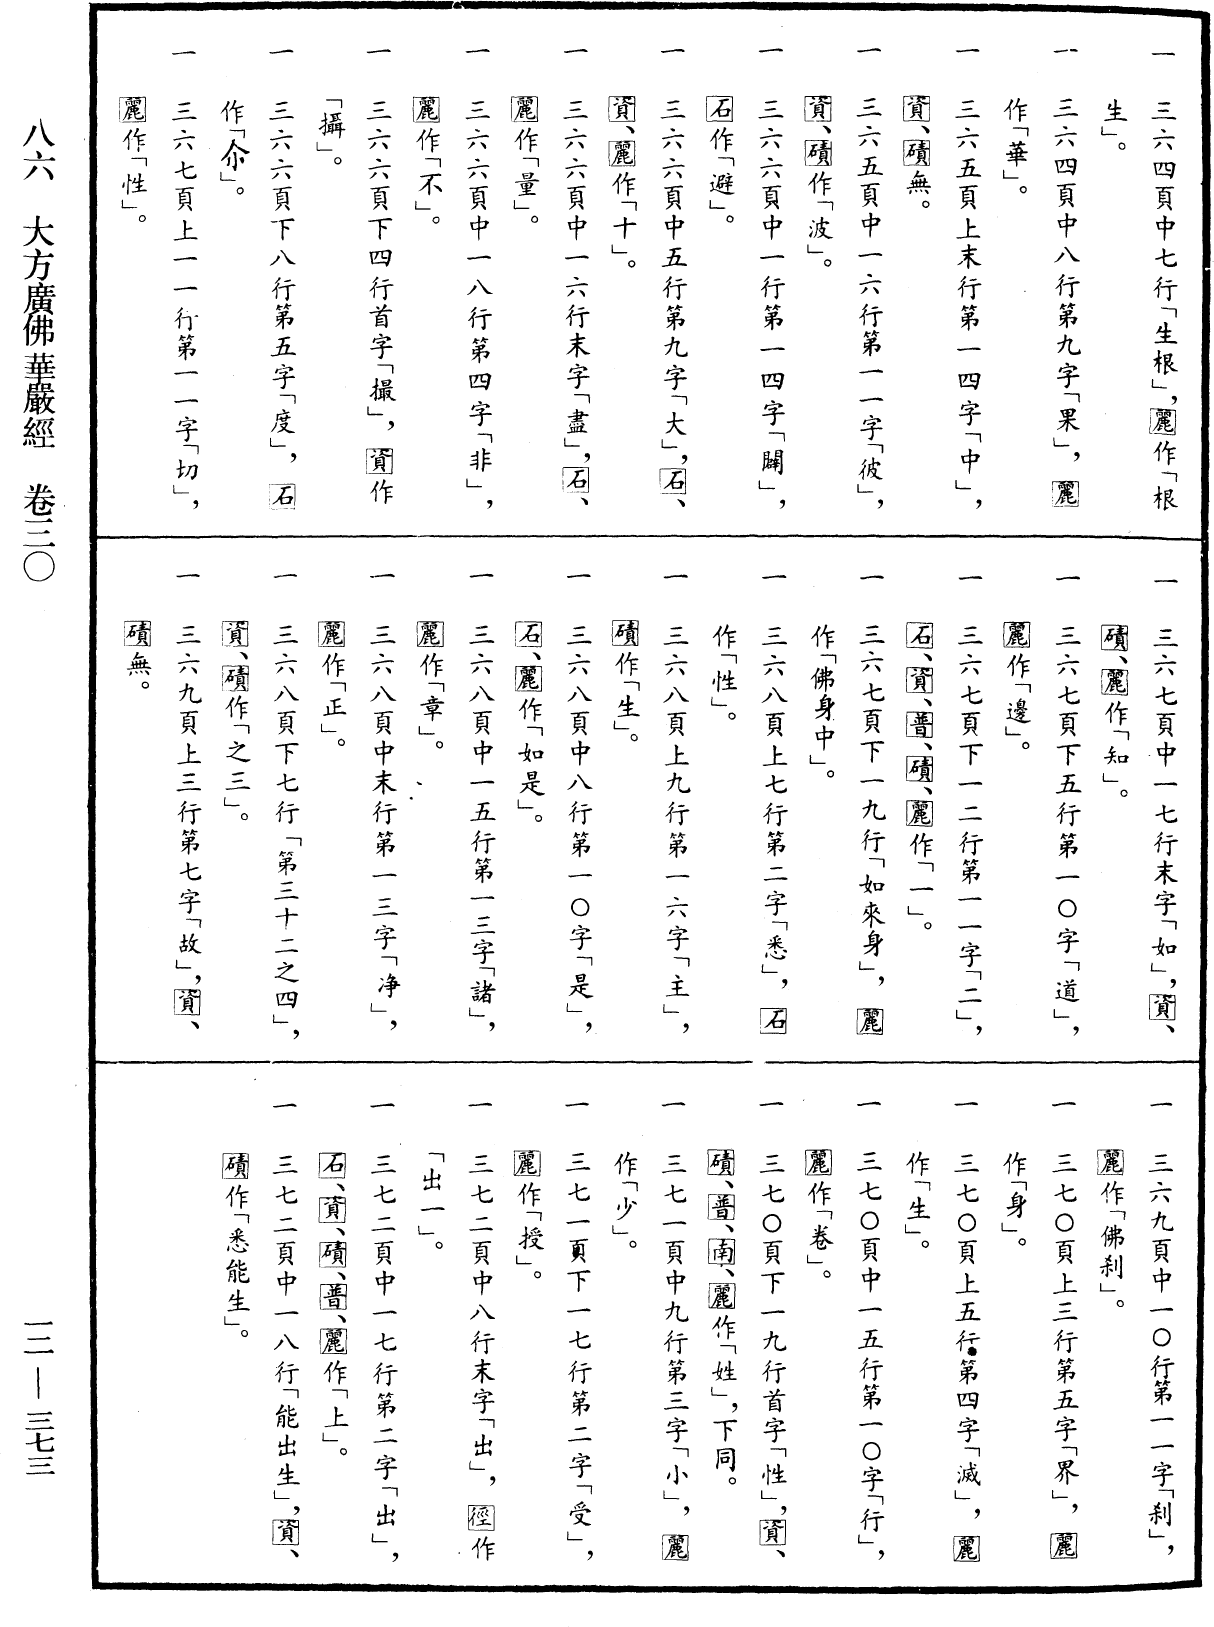 一　三六四頁中七行「生根」，麗作「根
生」。
一　三六四頁中八行第九字「果」，麗
作「華」。
一　三六五頁上末行第一四字「中」，
資、磧無。
一　三六五頁中一六行第一一字「彼」，
資、磧作「波」。
一　三六六頁中一行第一四字「闢」，
石作「避」。
一　三六六頁中五行第九字「大」，石、
資、麗作「十」。
一　三六六頁中一六行末字「盡」，石、
麗作「量」。
一　三六六頁中一八行第四字「非」，
麗作「不」。
一　三六六頁下四行首字「撮」，資作
「攝」。
一　三六六頁下八行第五字「度」，石
作「尒」。
一　三六七頁上一一行第一一字「切」，
麗作「性」。
一　三六七頁中一七行末字「如」，資、
磧、麗作「知」。
一　三六七頁下五行第一〇字「道」，
麗作「邊」。
一　三六七頁下一二行第一一字「二」，
石、資、普、磧、麗作「一」。
一　三六七頁下一九行「如來身」，麗
作「佛身中」。
一　三六八頁上七行第二字「悉」，石
作「性」。
一　三六八頁上九行第一六字「主」，
磧作「生」。
一　三六八頁中八行第一〇字「是」，
石、麗作「如是」。
一　三六八頁中一五行第一三字「諸」，
麗作「章」。
一　三六八頁中末行第一三字「净」，
麗作「正」。
一　三六八頁下七行「第三十二之四」，
資、磧作「之三」。
一　三六九頁上三行第七字「故」，資、
磧無。
一　三六九頁中一〇行第一一字「刹」，
麗作「佛刹」。
一　三七〇頁上三行第五字「界」，麗
作「身」。
一　三七〇頁上五行第四字「滅」，麗
作「生」。
一　三七〇頁中一五行第一〇字「行」，
麗作「卷」。
一　三七〇頁下一九行首字「性」，資、
磧、普、南、麗作「姓」，下同。
一　三七一頁中九行第三字「小」，麗
作「少」。
一　三七一頁下一七行第二字「受」，
麗作「授」。
一　三七二頁中八行末字「出」，徑作
「出一」。
一　三七二頁中一七行第二字「出」，
石、資、磧、普、麗作「上」。
一　三七二頁中一八行「能出生」，資、
磧作「悉能生」。
八六　大方廣佛華嚴經　卷三〇
一二—三七三